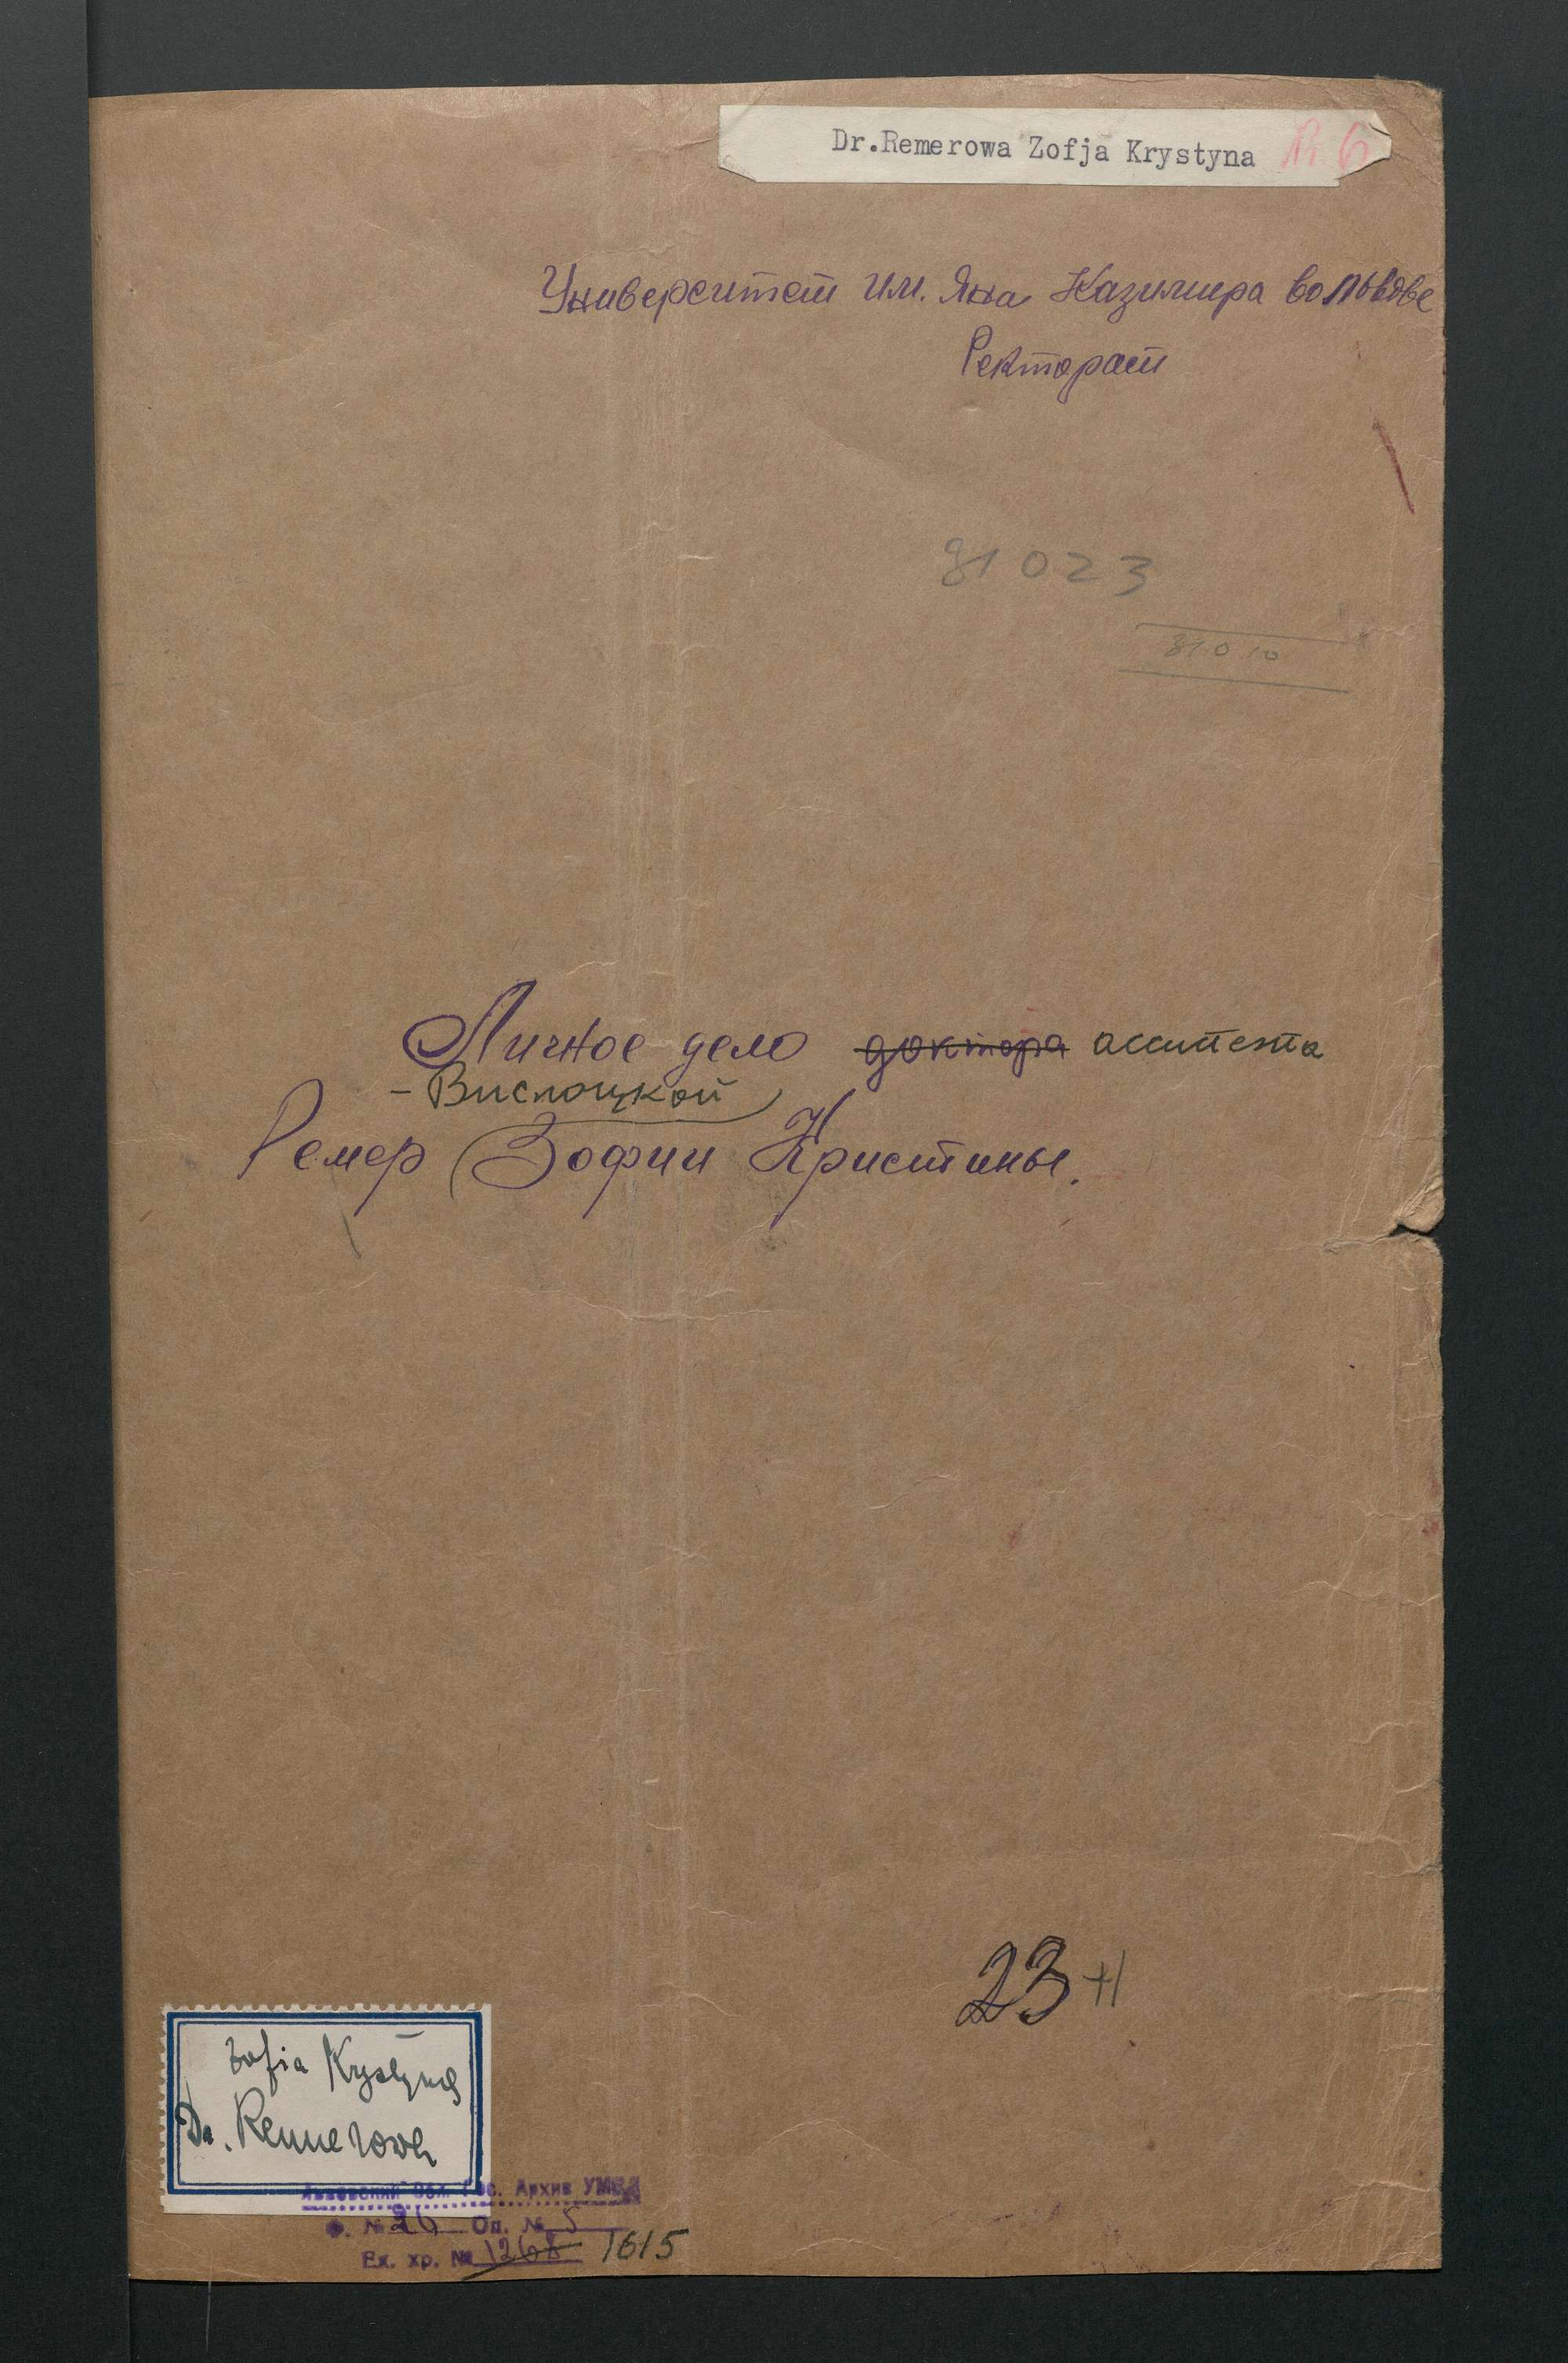 Dr.Remerowa Zofja Krystyna R. 6
Университет им. Яна Казимира во Львове
Ректорат
81023
81010
Личное дело доктора ассистента
-Вислоцкой
Ремер Зофии Кристины.
23 +1
Zofia Krystyna
Dr. Remerowa
Львовский Обл. Гос. Архив УМВД
Ф. № 26 Оп. № 5
Ед. хр. № 1268 1615